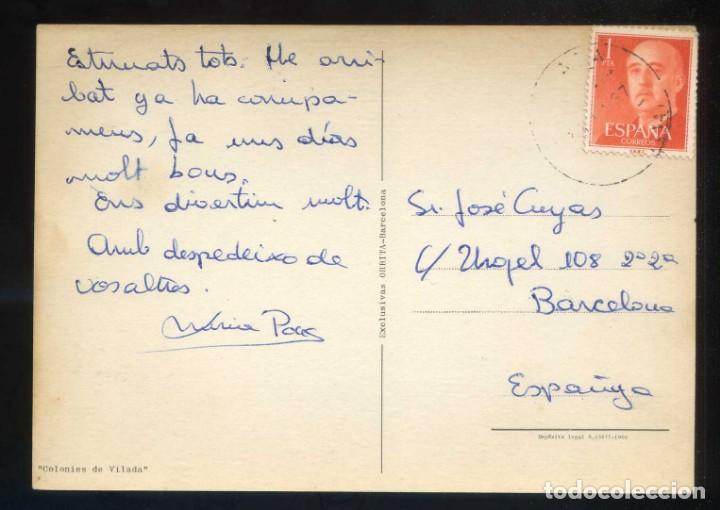 Estimats tots: He arri-
bat ja ha campa-
ments, fa uns días
molt bons.
Ens divertim molt.
Amb despedeixo de
vosaltres.
Maria Pous
"Colonies de Vilada"
Exclusivas ORBITA-Barcelona
1
PTA
ESPAÑA
CORREOS
Sr. José Cuyas
c/ Urgel 108 2º2ª
Barcelona
Españya
Depósito legal B.
todocoleccion.net